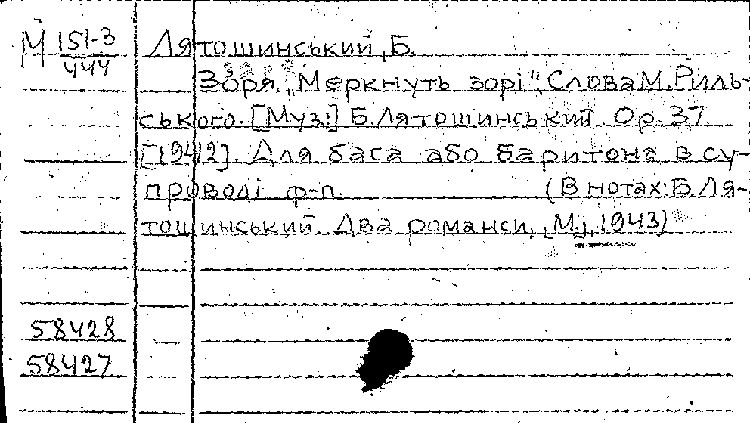 М 151-3
444
Лятошинський, Б.
Зоря. „Меркнуть зорі". Слова М. Риль-
ського. [Муз.] Б. Лятошинський. Ор. 37
[1942]. Для баса або баритона в су-
проводі ф-п. (В нотах: Б. Ля-
тошинський. Два романси. М., 1943)
58428
58427